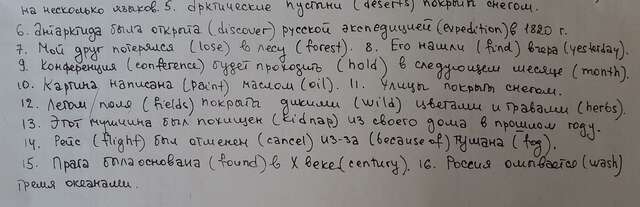 на несколько языков. 5. Арктические пустыни (deserts) покрыты снегом.
6. Антарктида была открыта (discover) русской экспедицией (expedition) в 1820 г.
7. Мой друг потерялся (lose) в лесу (forest). 8. Его нашли (find) вчера (yesterday).
9. Конференция (conference) будет проходить (hold) в следующем месяце (month).
10. Картина написана (paint) маслом (oil). 11. Улицы покрыты снегом.
12. Летом поля (fields) покрыты дикими (wild) цветами и травами (herbs).
13. Этот мужчина был похищен (kidnap) из своего дома в прошлом году.
14. Рейс (flight) был отменен (cancel) из-за (because of) тумана (fog).
15. Прага была основана (found) в X веке (century). 16. Россия омывается (wash)
тремя океанами.